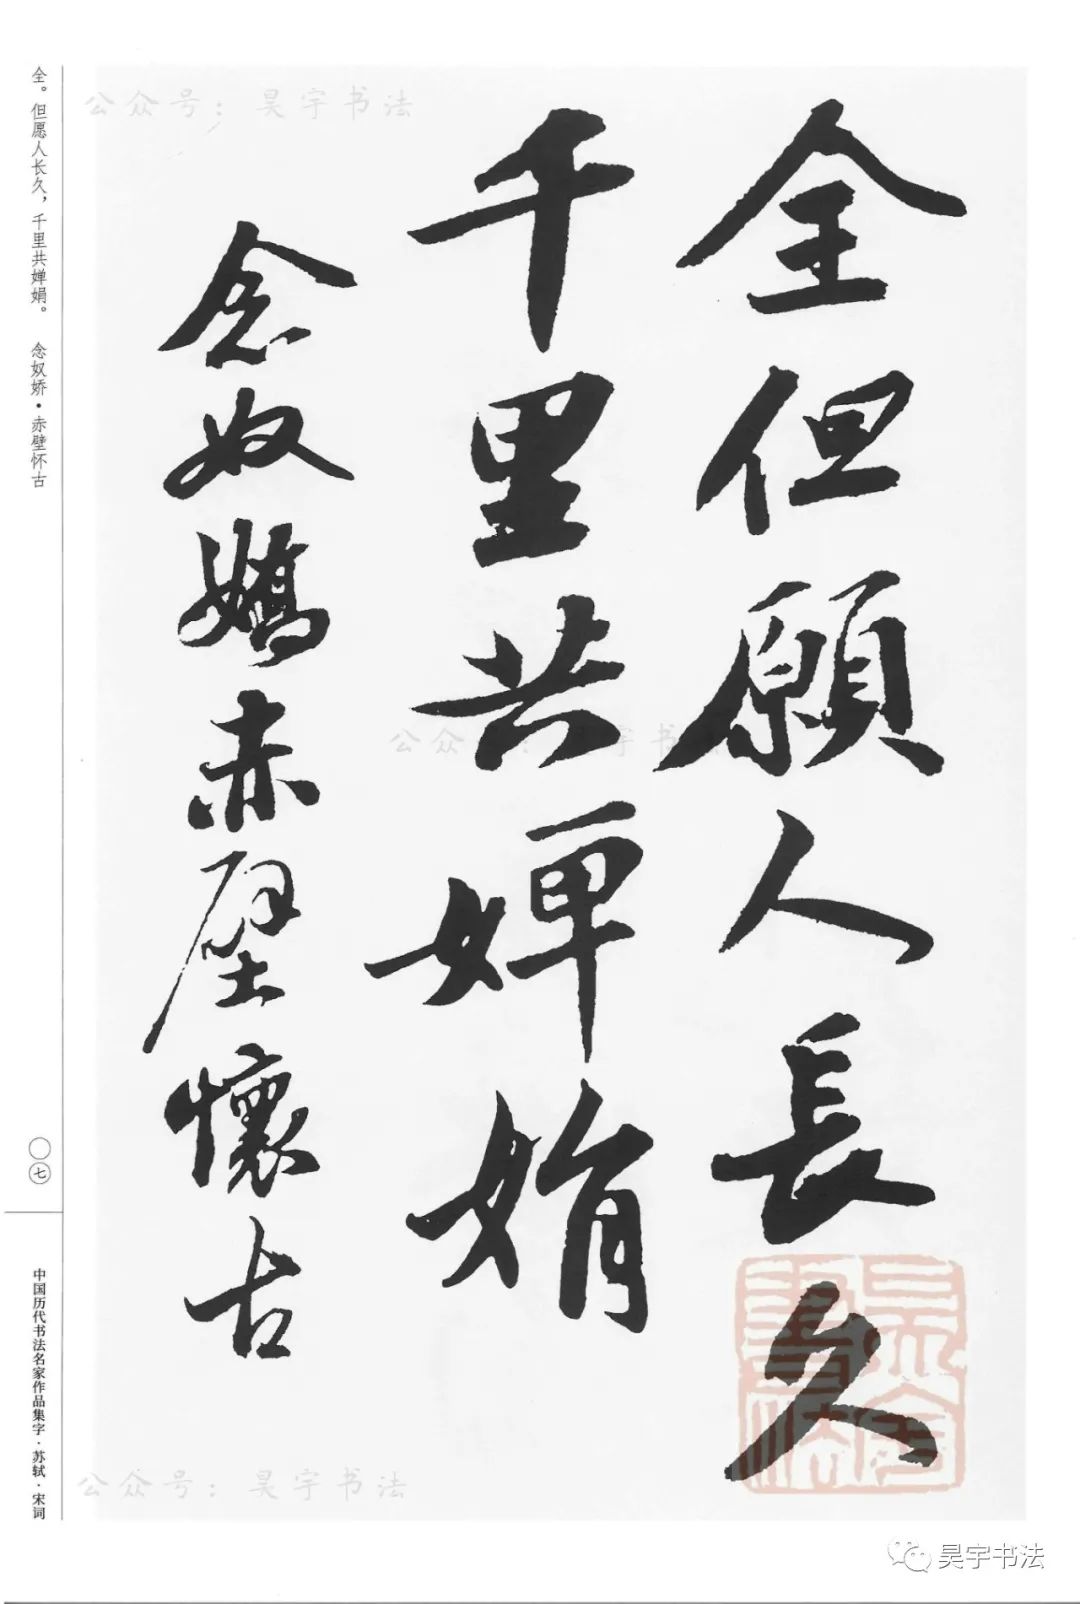 公众号：昊宇书法
全但願人長久
千里共嬋娟
念奴嬌赤壁懷古
全。但愿人长久，千里共婵娟。 念奴娇·赤壁怀古
〇七
中国历代书法名家作品集字·苏轼·宋词
公众号：昊宇书法
公众号：昊宇书法
昊宇书法
昊宇书法